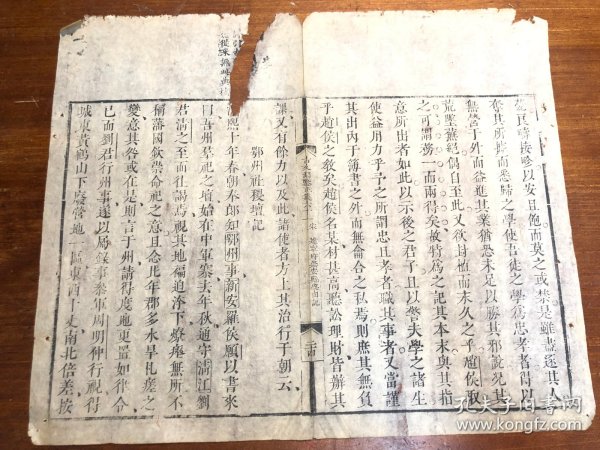 時接以安且飽而莫之或禁是雖盡逐其人
奪其所據而悉歸之學使吾徒之學爲忠孝者得以
無營于外而益進其業猶恐未足以勝其邪說况其
荒墜蕪絕偶自至此又欲封植而永久之乎趙侯取
之可謂務一而兩得矣故特爲之記其本末與其指
意所出者如此以示後之君子且以警夫學之諸生
使益用力乎予之所謂忠且孝者職其事者又當謹
其出内于簿書之外而無龠合之私焉則庶其無負
乎趙侯之教矣趙侯名某材甚高聽訟理財皆辦其
二十四
課又有餘力以及此諸使者方上其治行于朝云
鄂州社稷壇記
淳熙十年春朝奉郎知鄂州事新安羅侯願以書來
曰吾州羣祀之壇始在中軍寨去年秋通守清江劉
君清之至而往謁焉視其地褊迫洿下燎瘞無所不
稱藩國欽崇命祀之意且念比年郡多水旱札瘥之
變意其咎或在是則言于州請得度地更置如律令
已而劉君行州事遂以屬錄事參軍周明仲行視得
城東黃鶴山下廢營地一區東西十丈南北倍差按
孔夫子旧书网
www.kongfz.com